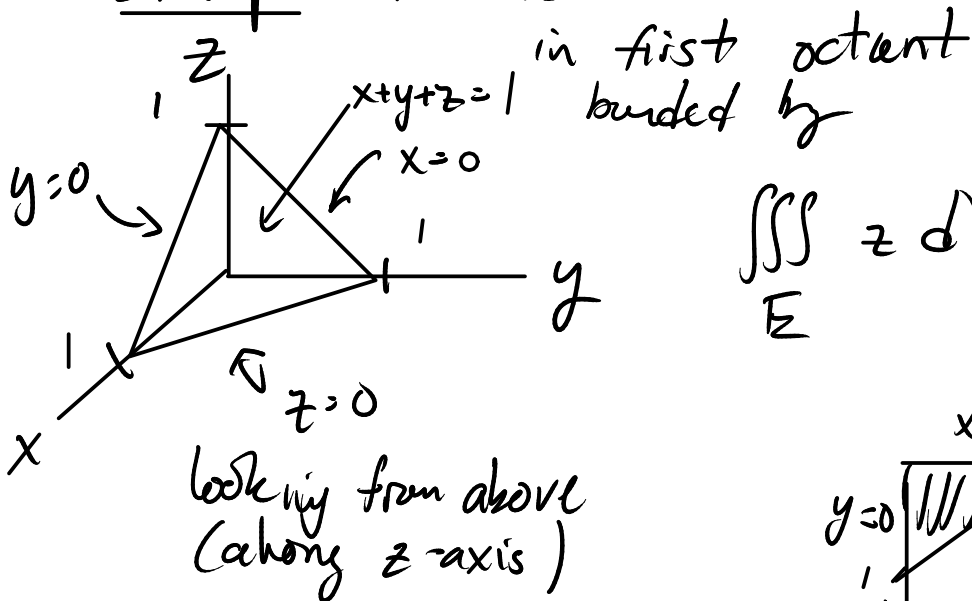 in first octant
bunded by
z
1
x+y+z=1
x=0
y=0
1
y
∭ z d
E
1
z=0
x
looking from above
(ahong z-axis)
x
y=0
1